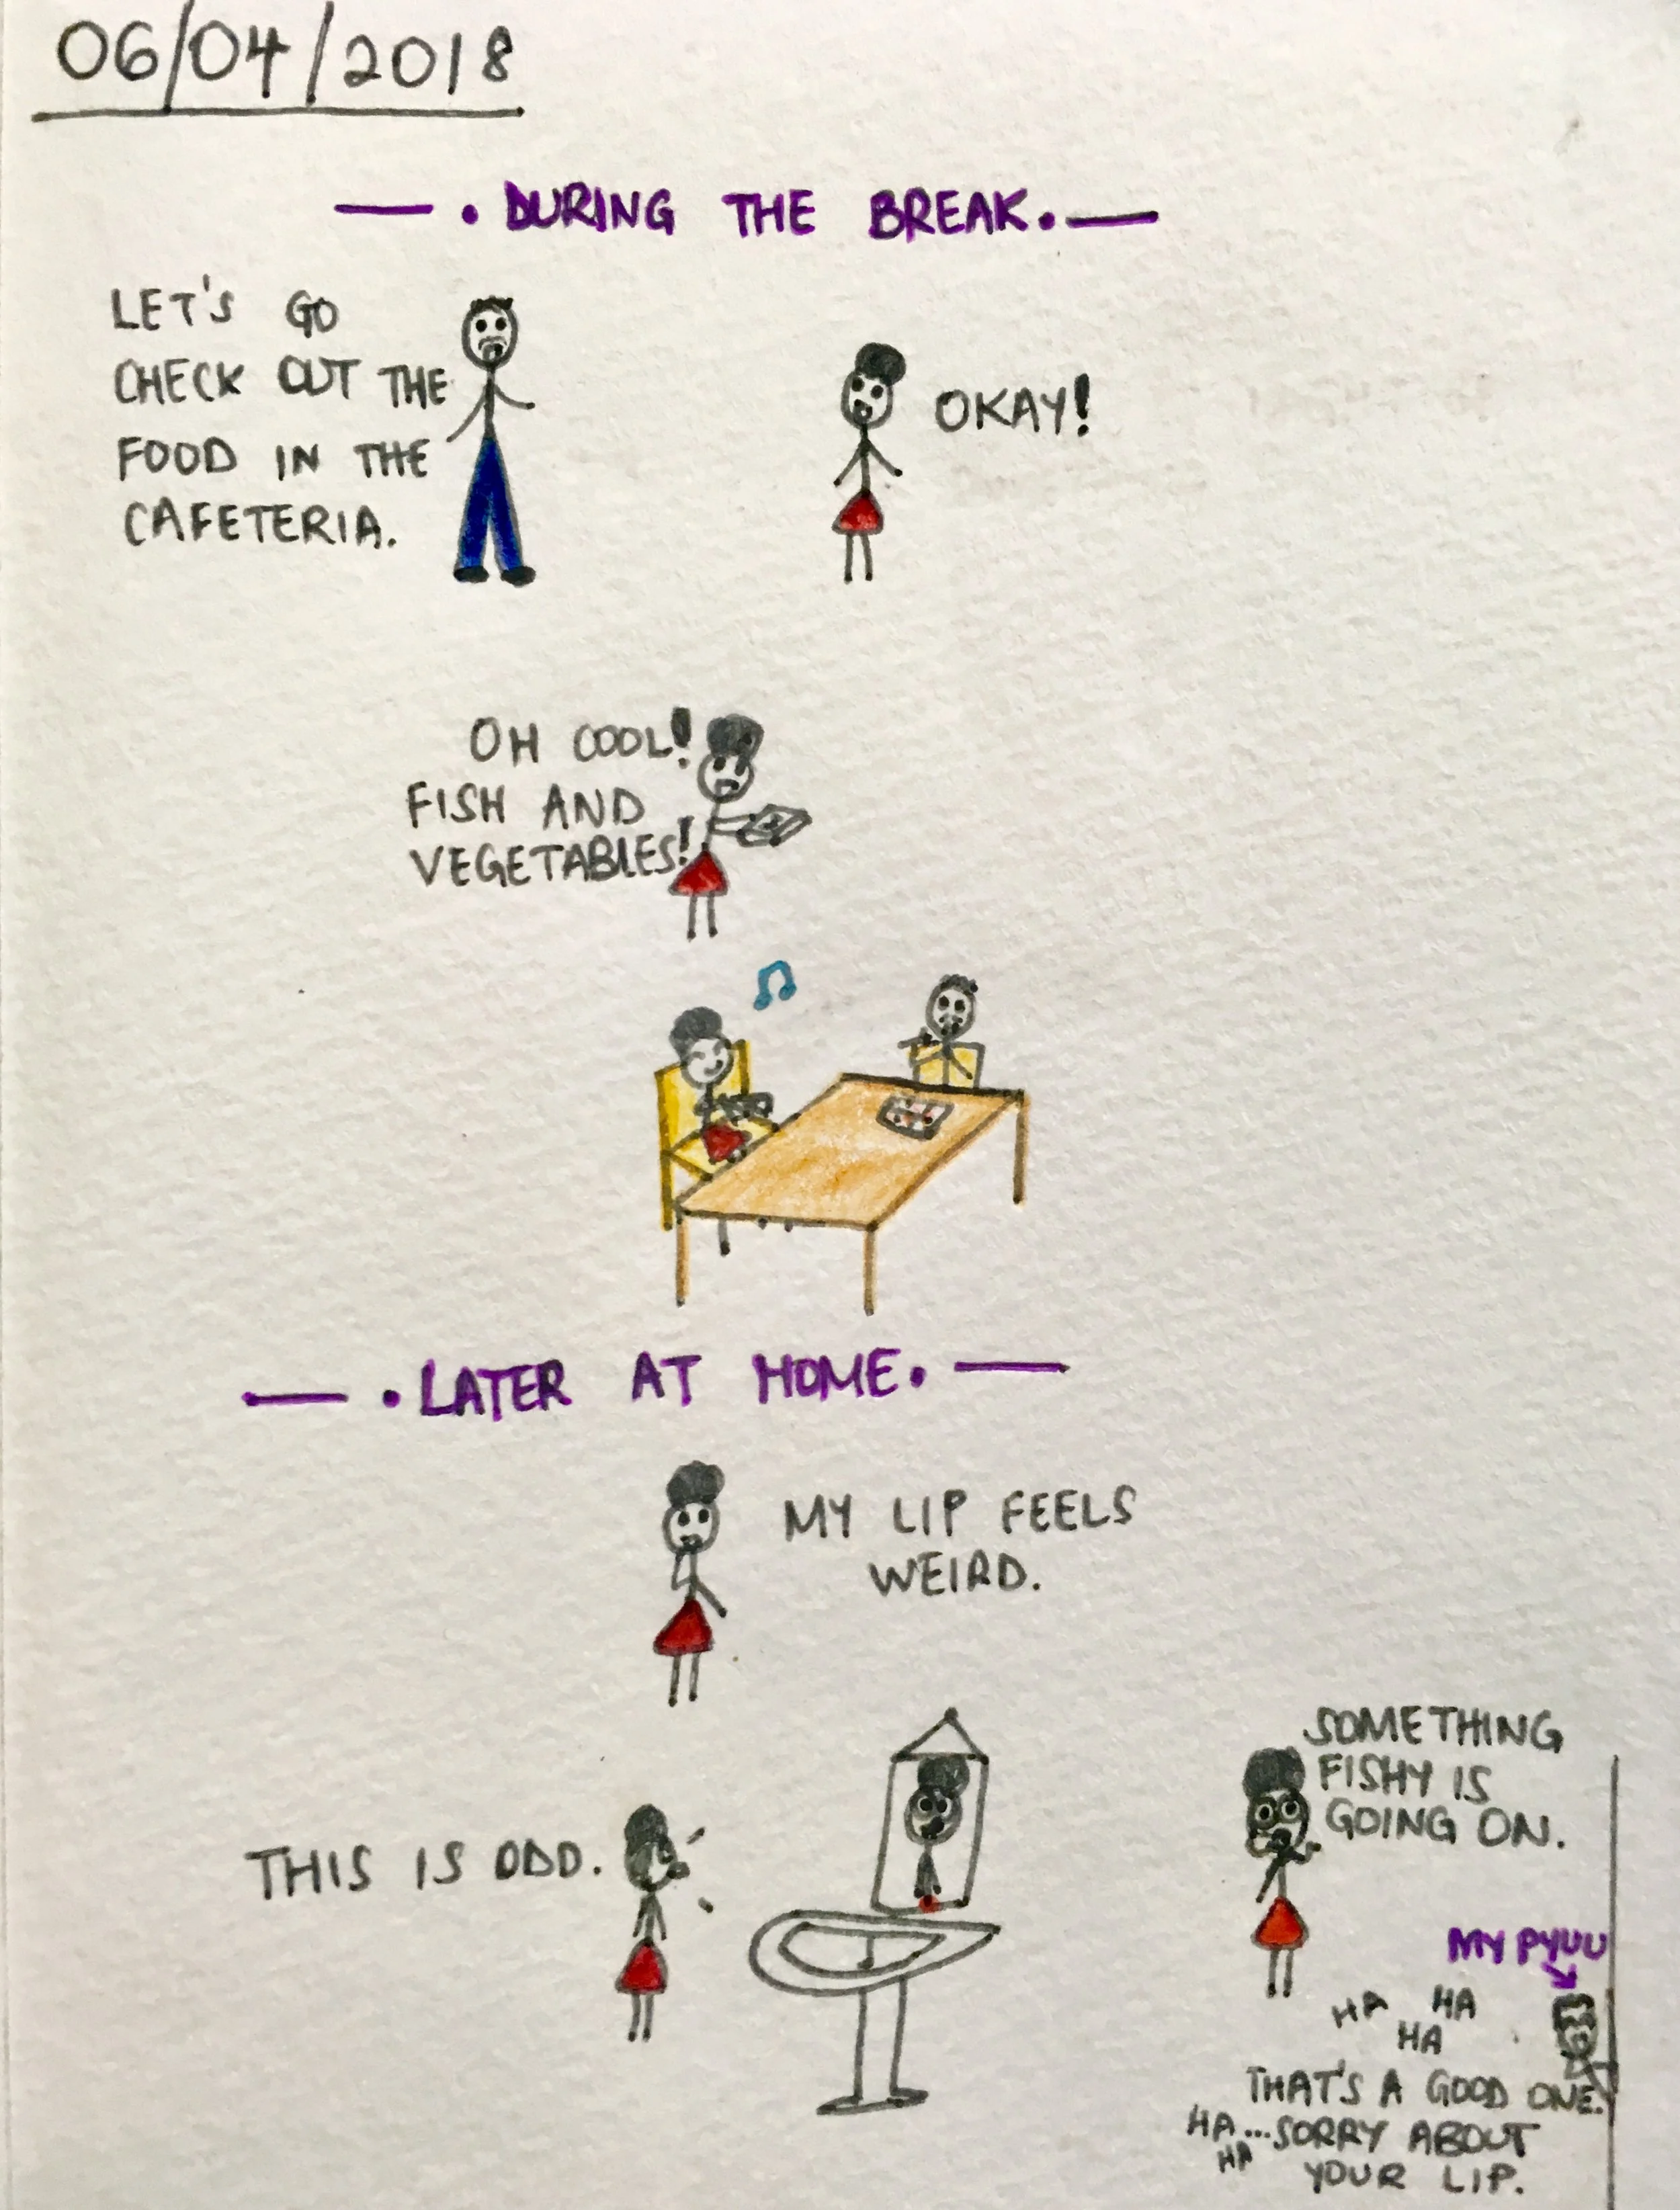 06/04/2018
— . DURING THE BREAK. —
LET'S GO
CHECK OUT THE
FOOD IN THE
CAFETERIA.
OKAY!
OH COOL!
FISH AND
VEGETABLES!
— . LATER AT HOME. —
MY LIP FEELS
WEIRD.
THIS IS ODD.
SOMETHING
FISHY IS
GOING ON.
MY PYUU
HA HA
HA
THAT'S A GOOD ONE.
HA...SORRY ABOUT
HA
YOUR LIP.